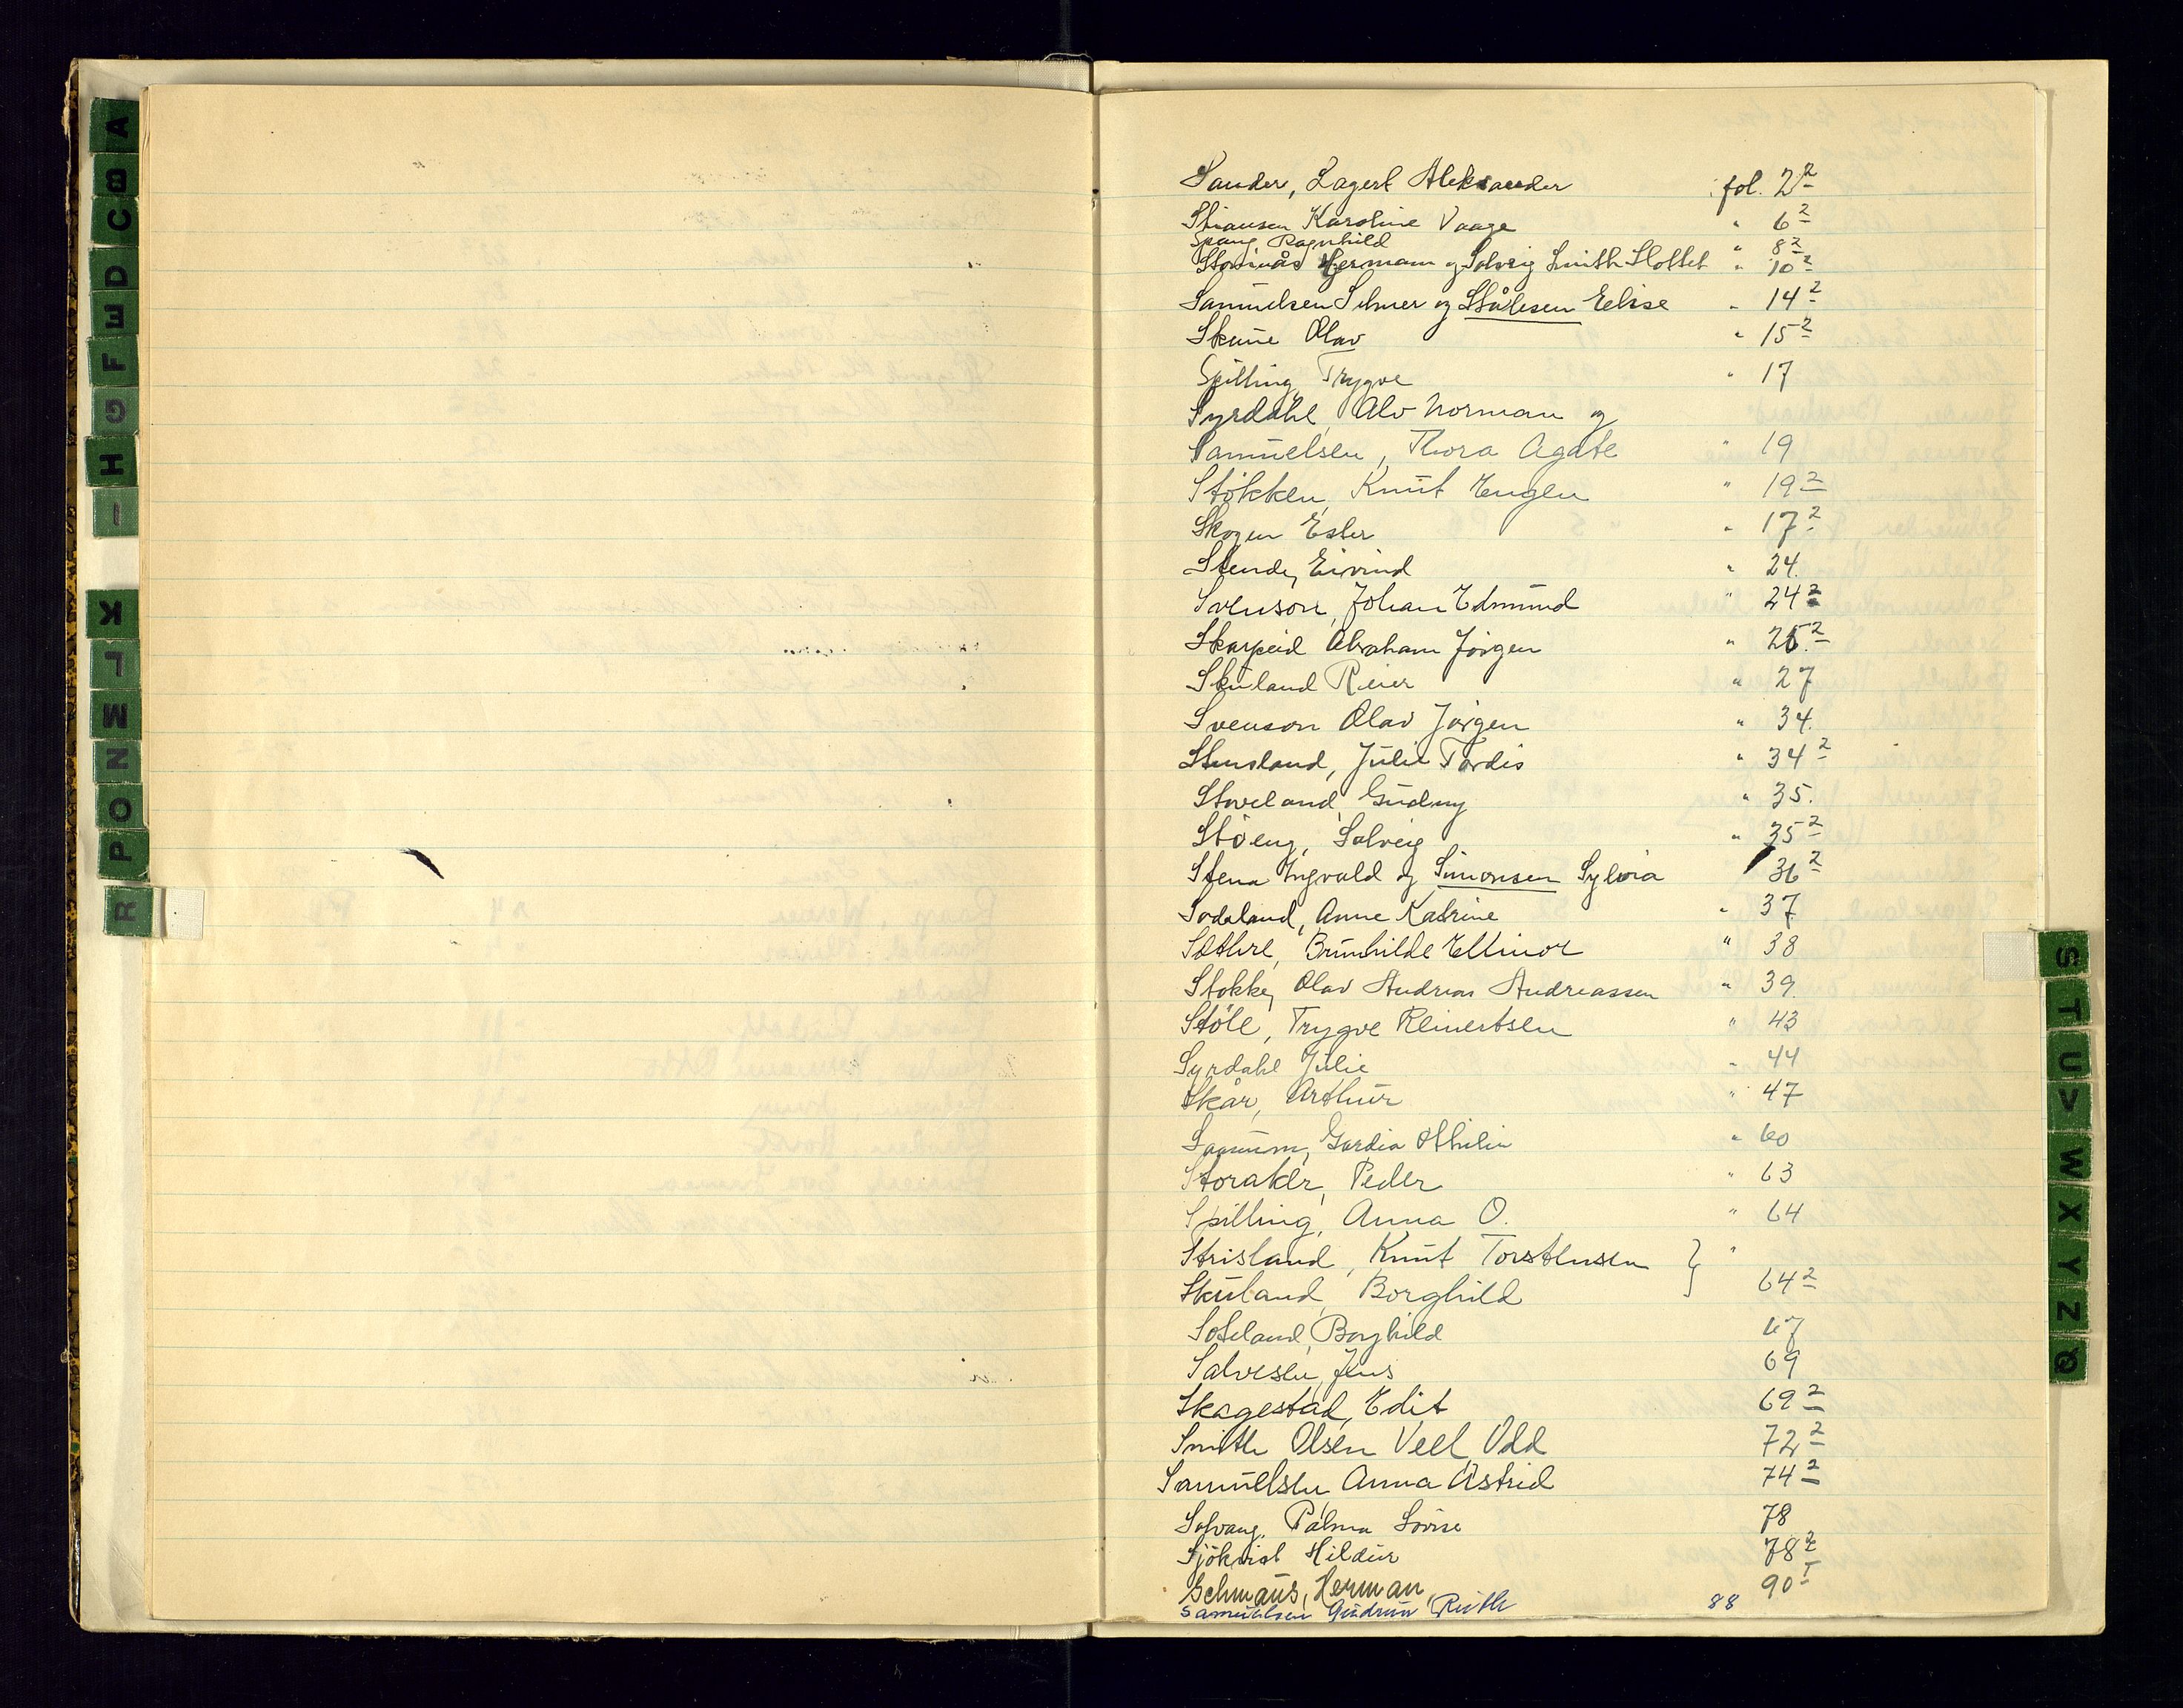 A
B
C
D
E
F
G
H
I
K
L
M
N
O
P
R
Sander, Lagert Aleksander fol. 2²
Stiansen Karoline Vaage " 6²
Spang, Ragnhild " 8²
Hermann og Solveig Smith Slottet " 10²
Samuelsen Selmer og Stålesen Eelise " 14²
Skeine Olav " 15²
Spilling, Trygve " 17
Syrdahl, Alv Norman og
Samuelsen, Thora Agate " 19
Stökken, Knut Eugen " 19²
Skogen Ester " 17²
Stende, Eivind " 24.
Svenson, Johan Edmund " 24²
Skarpeid Abraham Jörgen " 25²
Skuland Reier " 27
Svenson Olav Jörgen " 34.
Stensland, Julie Tordis " 34²
Stoveland, Gudny " 35.
Stöeng, Solveig " 35²
Stena Ingvald og Simonsen Sylvia 36²
Sodeland, Anne Katrine " 37
Sæthre, Brunhilde Ellinor " 38
Stokke, Olav Andreas Andreassen " 39.
Stöle, Trygve Reinertsen " 43
Syrdahl Julie " 44
Skår, Arthur " 47
Othilie " 60
Storaker, Peder " 63
Spilling, Anna O. " 64
Strisland, Knut Torstensen } "
Skuland, Borghild 64²
Soteland, Borghild 67
Salvesen, Jens 69
Skagestad, Edit 69²
Smith Olsen Veel, Odd 72²
Samuelsen Anna Astrid 74²
Solvang, Palma Lovise 78
Sjökvist Hildur 78²
Schmaus, Herman 90¹
Samuelsen Gudrun Ruth 88
S
T
U
V
W
X
Y
Z
Q